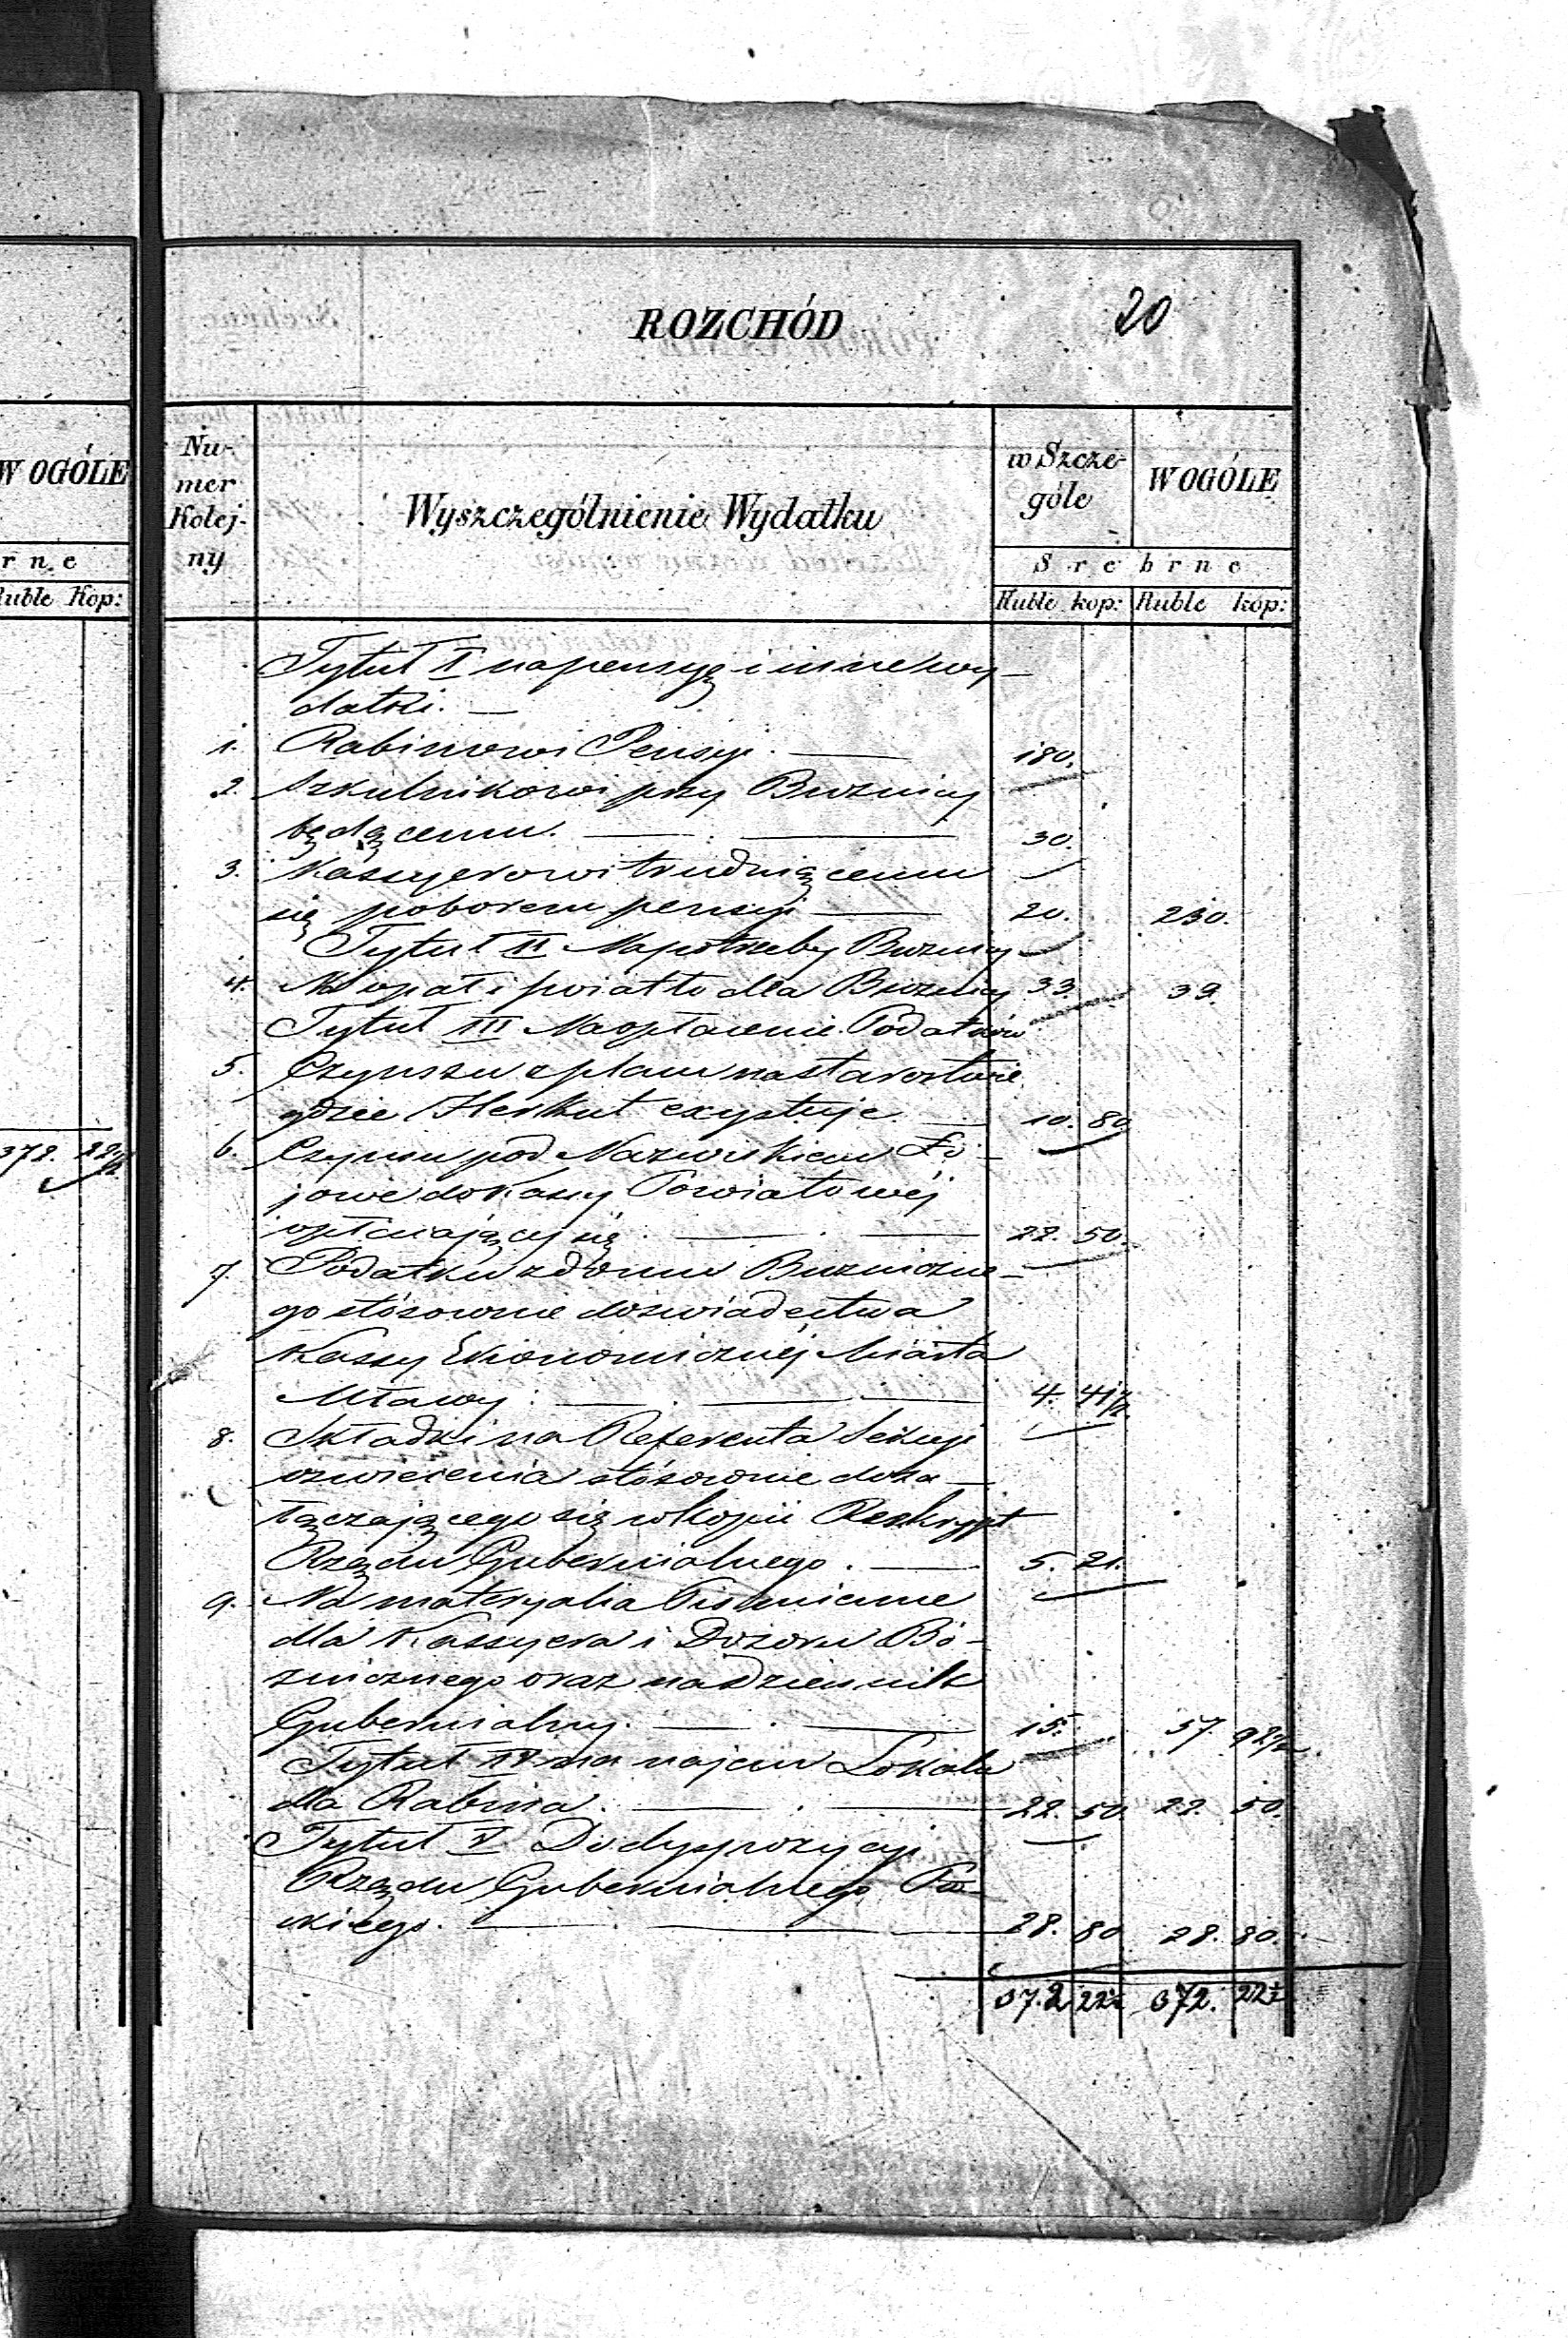 W OGÓLE
r n e
Ruble Kop:
372. 22 1/2
ROZCHÓD 20
Numer Kolejny
Wyszczególnienie Wydatku
w Szczególe
W OGÓLE
S r e b r n e
Ruble kop: Ruble kop:
Tytuł I na pensyę i inne wy-
datki. —
1. Rabinowi Pensyi. — 180.
2. Szkulnikowi przy Bużnicy
będącemu. — 30.
3. Kassyerowi trudniącemu
się poborem pensyi — 20. 230.
Tytuł II Na potrzeby Bużnicy
4. Na opał i świałto dla Bużnicy 33. 33.
Tytuł III Na opłacenie Podatków
5. Czynszu z placu na starostwie
gdzie exystuje — 10. 80.
6. Czynszu pod Nazwiskiem Ło-
jowe do Kassy Powiatowéj
opłcający się. — 22. 50.
7. Podatku z domu Bużniczne-
go stósownie do świadectwa
Kassy Ekonomicznéj Miasta
Mławy. — 4. 41 1/2.
8. Składki na Referenta Sekcyi
oświecenia stósownie do za-
łączającego się w Kopii Reskrypt
Rządu Gubernialnego. — 5. 21.
9. Na materyalia Piśmienne
dla Kassyera i Dozoru Bó-
żnicznego oraz na dziennik
Gubernialny. — 15. 57. 92 1/2
Tytuł IV na najem Lokalu
dla Rabina. — 22. 50. 22. 50.
Tytuł V Do dyspozycyi
Rządu Gubernialnego Pło-
ckiego. — 28. 80 28. 80.
372 22 1/2 372. 22 1/2